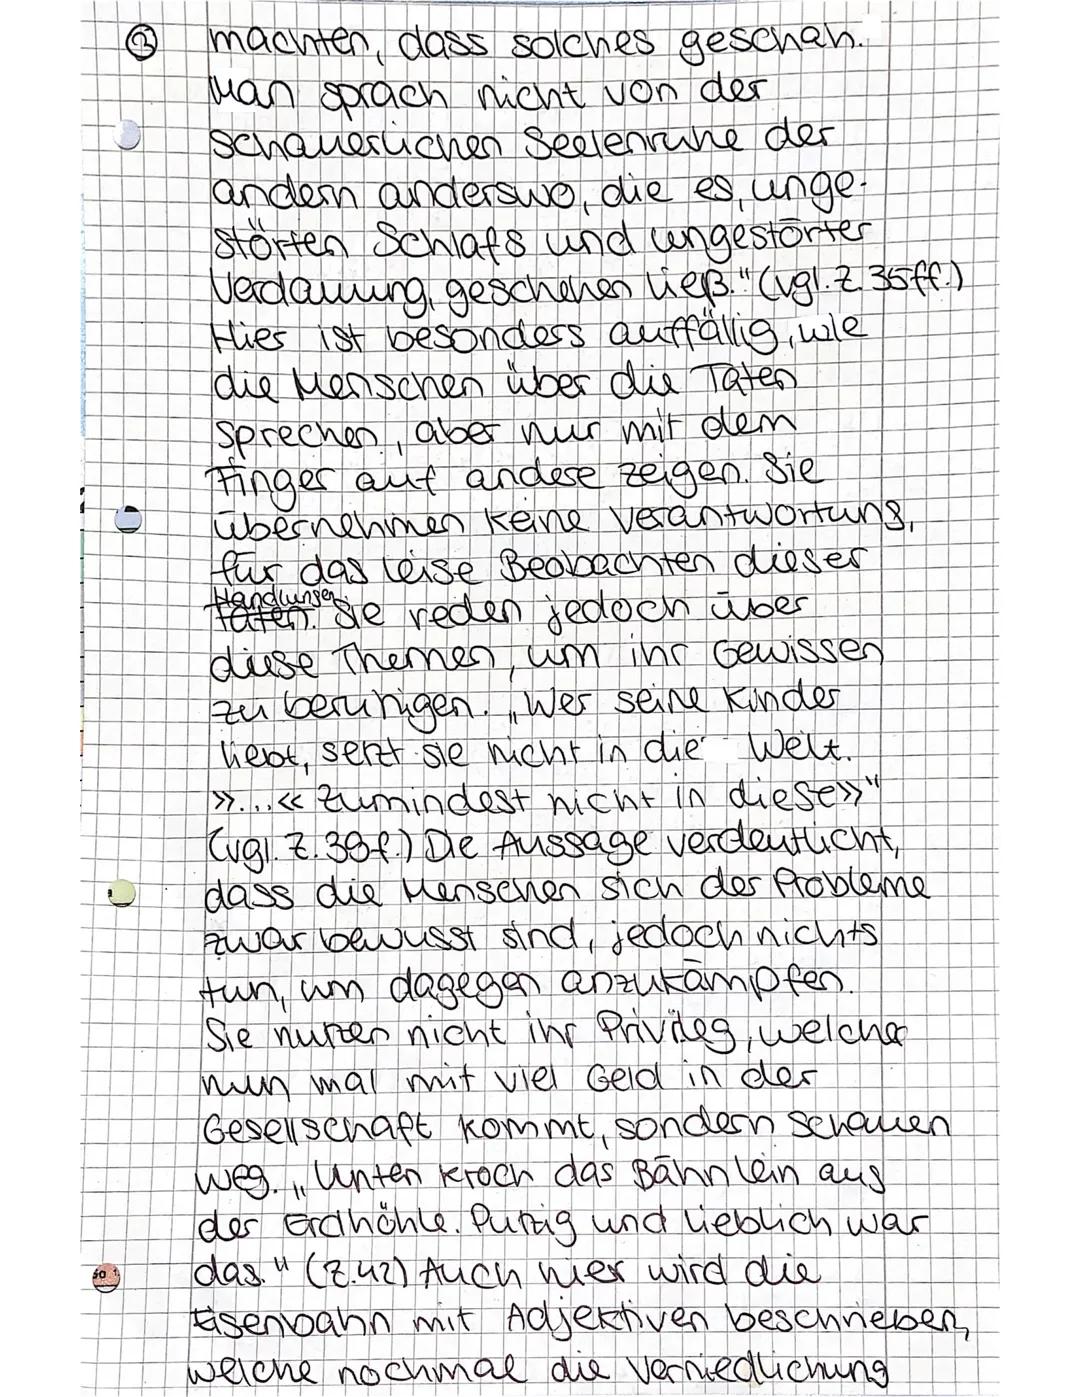 ③ machten, dass solches geschah.
Man sprach nicht von der
schauerlichen Seelenruhe der
andern anderswo, die es, unge-
störten Schlafs und ungestörter
Verdauung, geschehen ließ." (vgl. Z. 35ff.)
Hier ist besonders auffällig, wie
die Menschen über die Taten
sprechen, aber nur mit dem
Finger auf andere zeigen. Sie
übernehmen keine Verantwortung,
für das leise Beobachten dieser
Handlungen
Taten. Sie reden jedoch über
diese Themen, um ihr Gewissen
zu beruhigen. „Wer seine Kinder
liebt, setzt sie nicht in die Welt.
»...« Zumindest nicht in diese»"
(vgl. Z. 39f.) Die Aussage verdeutlicht,
dass die Menschen sich der Probleme
zwar bewusst sind, jedoch nichts
tun, um dagegen anzukämpfen.
Sie nutzen nicht ihr Privileg, welches
nun mal mit viel Geld in der
Gesellschaft kommt, sondern schauen
weg. „Unten kroch das Bähnlein aus
der Erdhöhle. Putzig und lieblich war
das." (Z.42) Auch hier wird die
Eisenbahn mit Adjektiven beschrieben,
welche nochmal die Verniedlichung